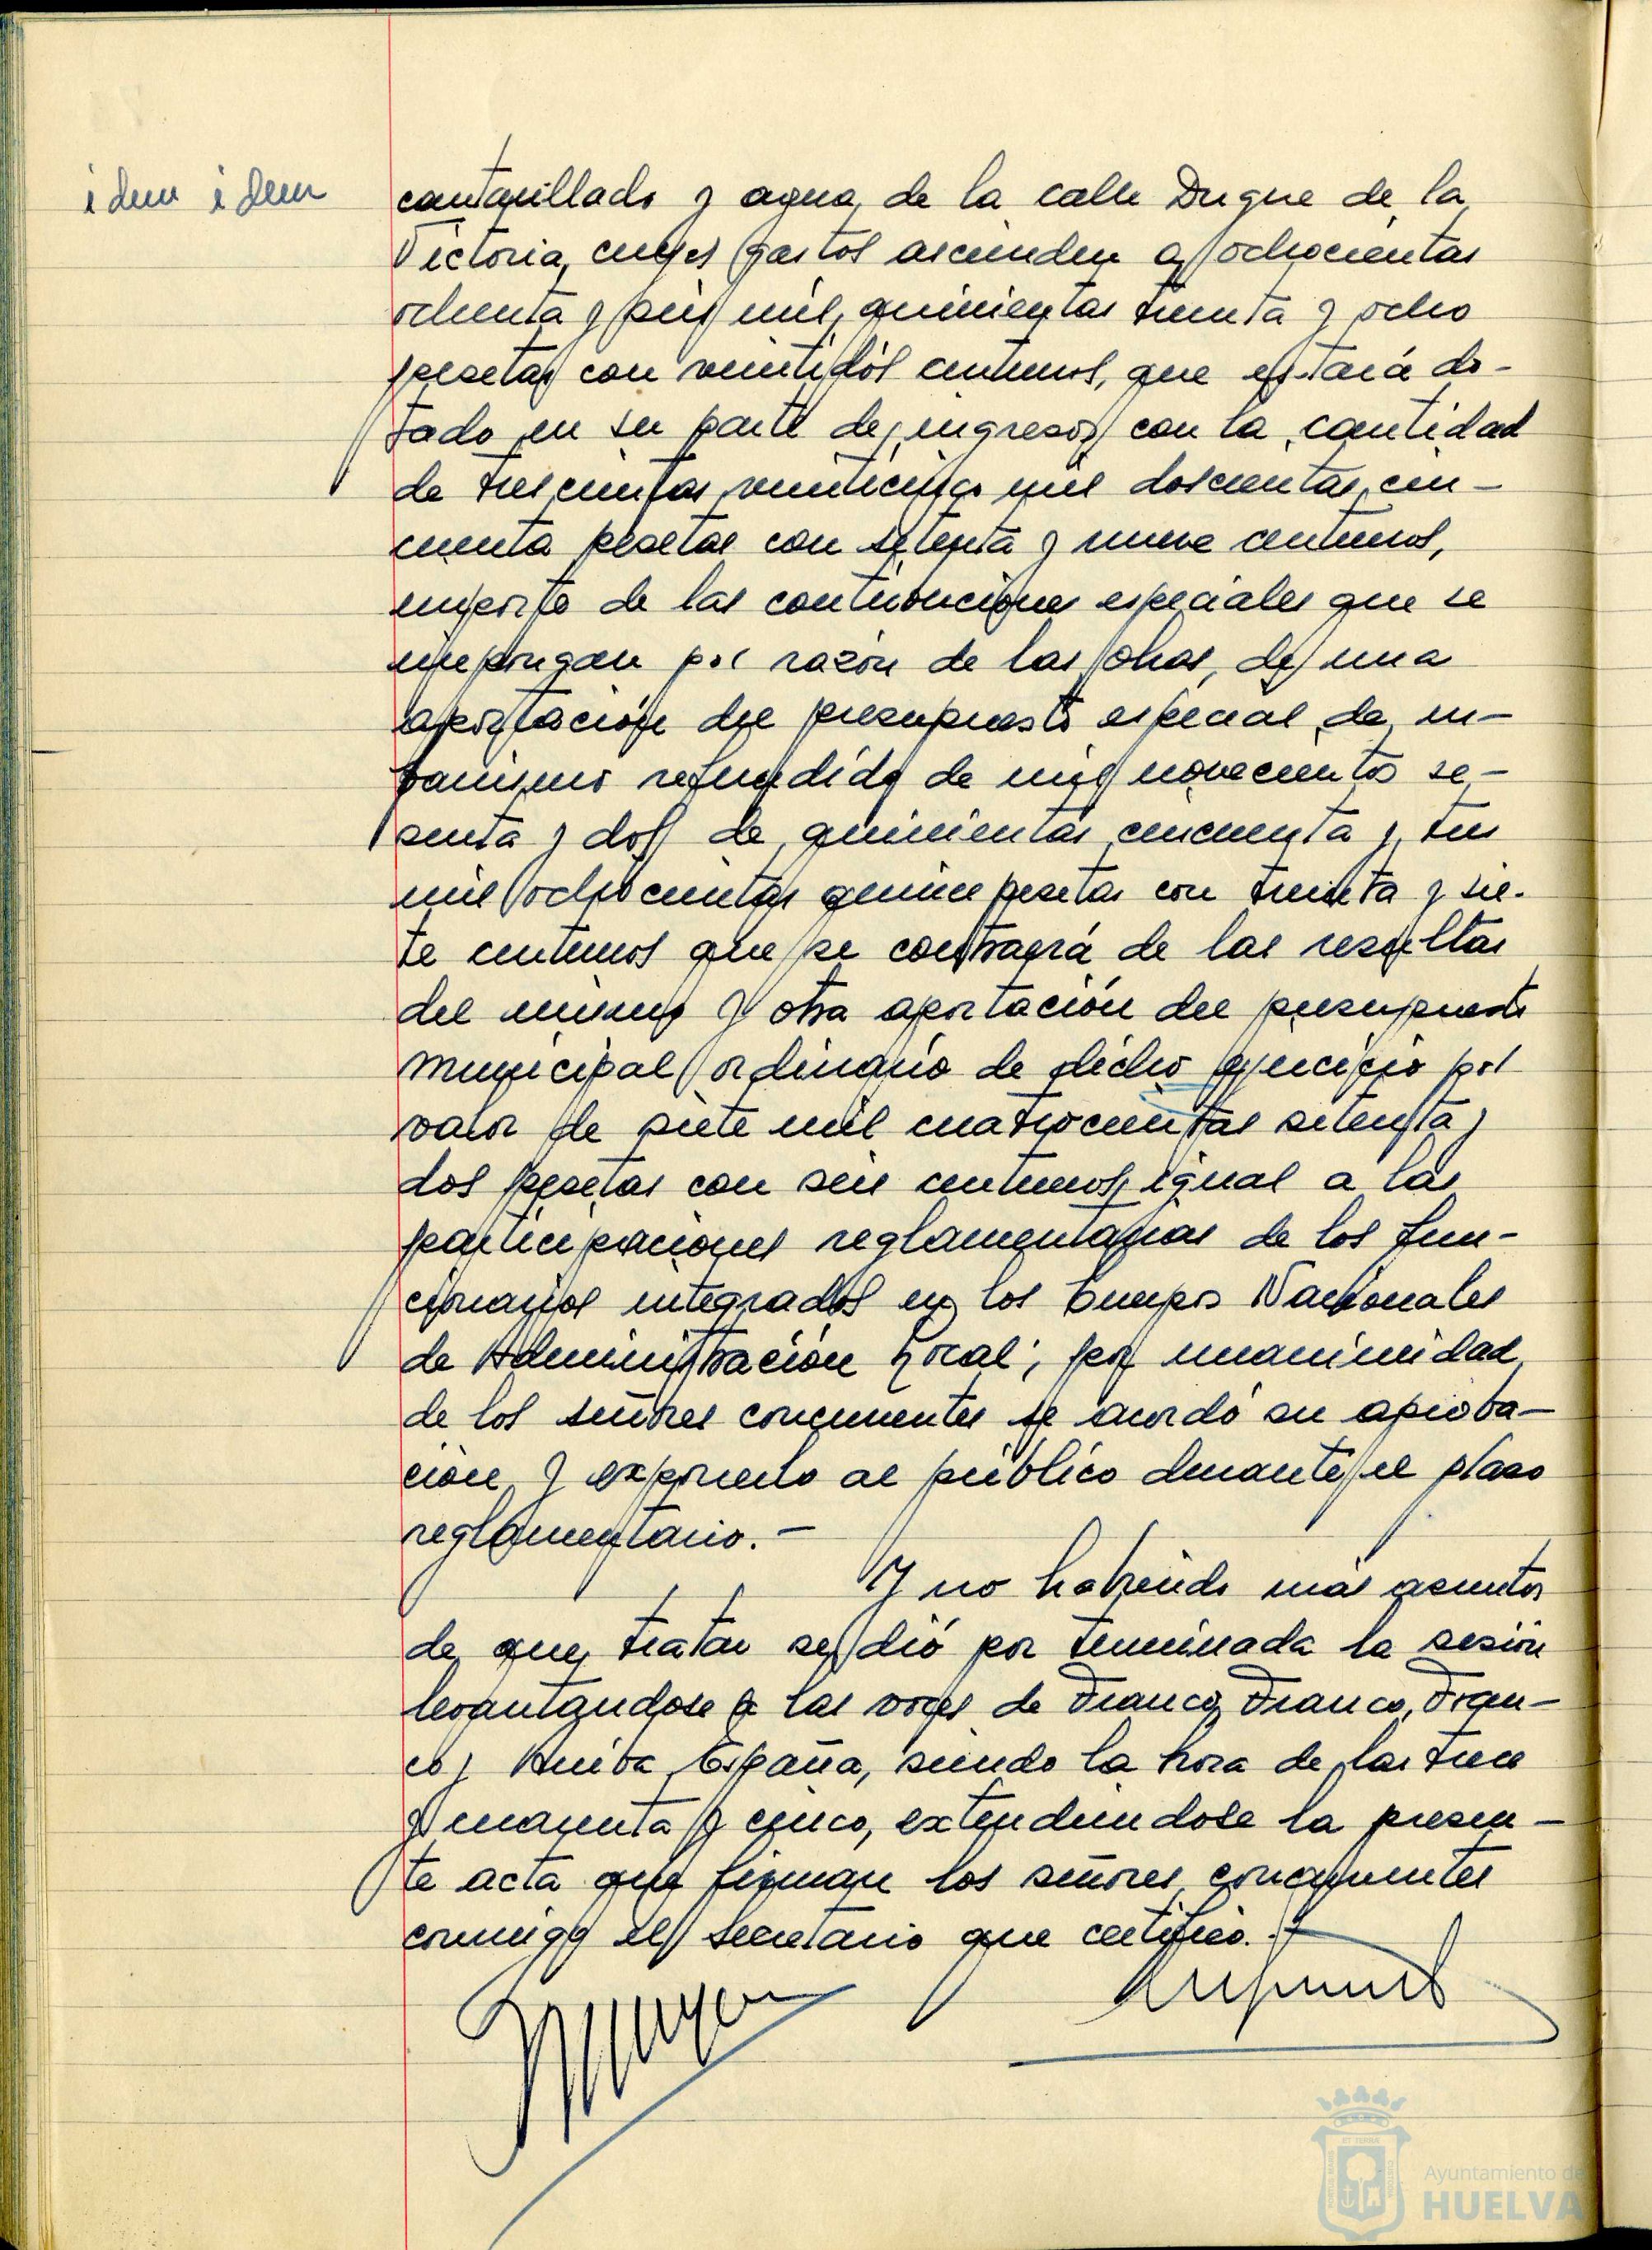 idem idem
cantarillado y agua, de la calle Duque de la
Victoria, cuyos gastos ascienden a ochocientas
ochenta y seis mil, quinientas treinta y ocho
pesetas con veintidós centimos, que estará do-
tado en su parte de ingresos con la cantidad
de trescientas veinticinco mil doscientas cin-
cuenta pesetas con setenta y nueve centimos,
importe de las contribuciones especiales que se
impongan por razón de las obras, de una
aportación del presupuesto especial de ur-
banismo refundido de mil novecientos se-
senta y dos de quinientas cincuenta y tres
mil ochocientas quince pesetas con treinta y sie-
te centimos que se contraerá de las resultas
del mismo y otra aportación del presupuesto
municipal ordinario de dicho ejercicio por
valor de siete mil cuatrocientas setenta y
dos pesetas con seis centimos, igual a las
participaciones reglamentarias de los fun-
cionarios integrados en los Cuerpos Nacionales
de Administración Local; por unanimidad
de los señores concurrentes se acordó su aproba-
ción y exponerlo al público durante el plazo
reglamentario.-
Y no habiendo más asuntos
de que tratar se dió por terminada la sesión
levantandose a las voces de Franco, Franco, Fran-
co y Arriba España, siendo la hora de las trece
y cuarenta y cinco, extendiendose la presen-
te acta que firman los señores concurrentes
conmigo el Secretario que certifico.-
Ayuntamiento de
HUELVA